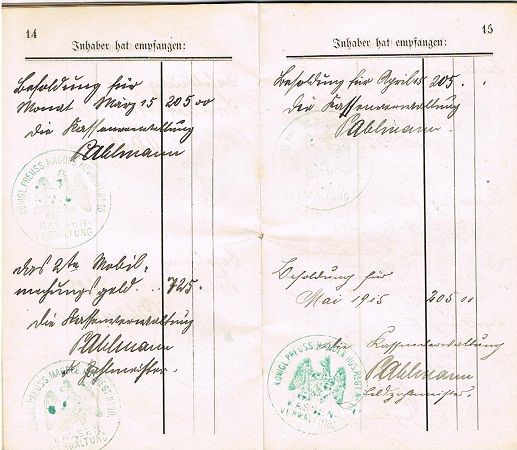 14
Inhaber hat empfangen:
Besoldung für
Monat März 15 205 00
Die Kassenverwaltung
Pahlmann
KÖNIGL. PREUSS. MAGDB. HUS. REGT. No. 10
KASSEN-
VERWALTUNG
das 2te Mobil-
machungsgeld. .. 725.
Die Kassenverwaltung
Pahlmann
Zahlmeister.
KÖNIGL. PREUSS. MAGDB. HUS. REGT. No. 10
KASSEN-
VERWALTUNG
15
Inhaber hat empfangen:
Besoldung für April 15 205.
Die Kassenverwaltung
Pahlmann
Besoldung für
Mai 1915 205 00
Die Kassenverwaltung
Pahlmann
Feldzahlmeister.
KÖNIGL. PREUSS. MAGDB. HUS. REGT. No. 10
KASSEN-
VERWALTUNG